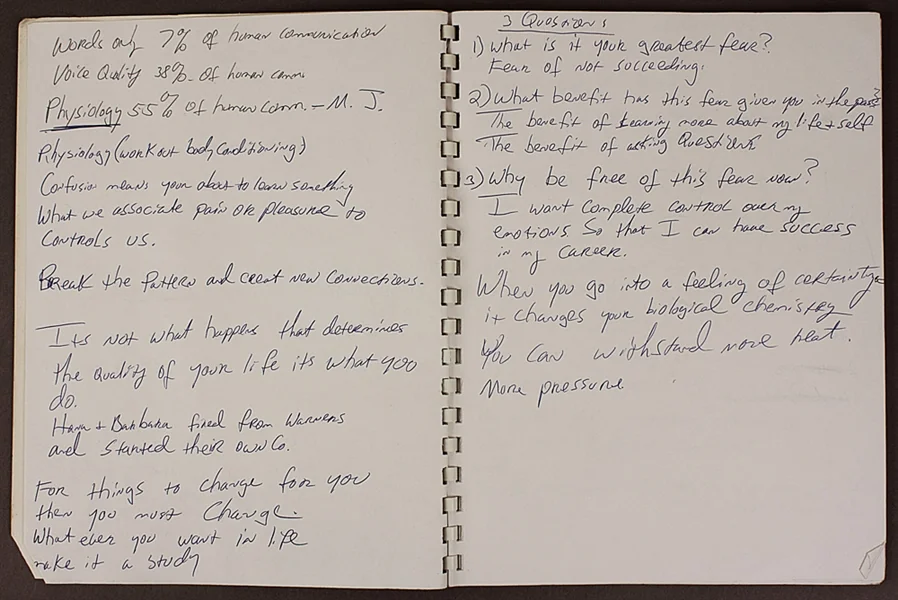 Words only 7% of human communication
Voice Quality 38% of human comm.
Physiology 55% of human comm. - M. J.
Physiology (workout body conditioning)
Confusion means your about to learn something
What we associate pain or pleasure to
controls us.
Break the pattern and creat new connections.
Its not what happens that determines
the quality of your life its what you
do.
+ Barbara fired from Warners
and started their own Co.
For things to change for you
then you must Change.
What ever you want in life
make it a study
3 Questions
1) What is it your greatest fear?
Fear of not succeeding.
2) What benefit has this fear given you in the past?
The benefit of learning more about my life & self
The benefit of asking Questions
3) Why be free of this fear now?
I want complete control over my
emotions. So that I can have success
in my career.
When you go into a feeling of certainty
it changes your biological chemistry
You can withstand more heat.
More pressure